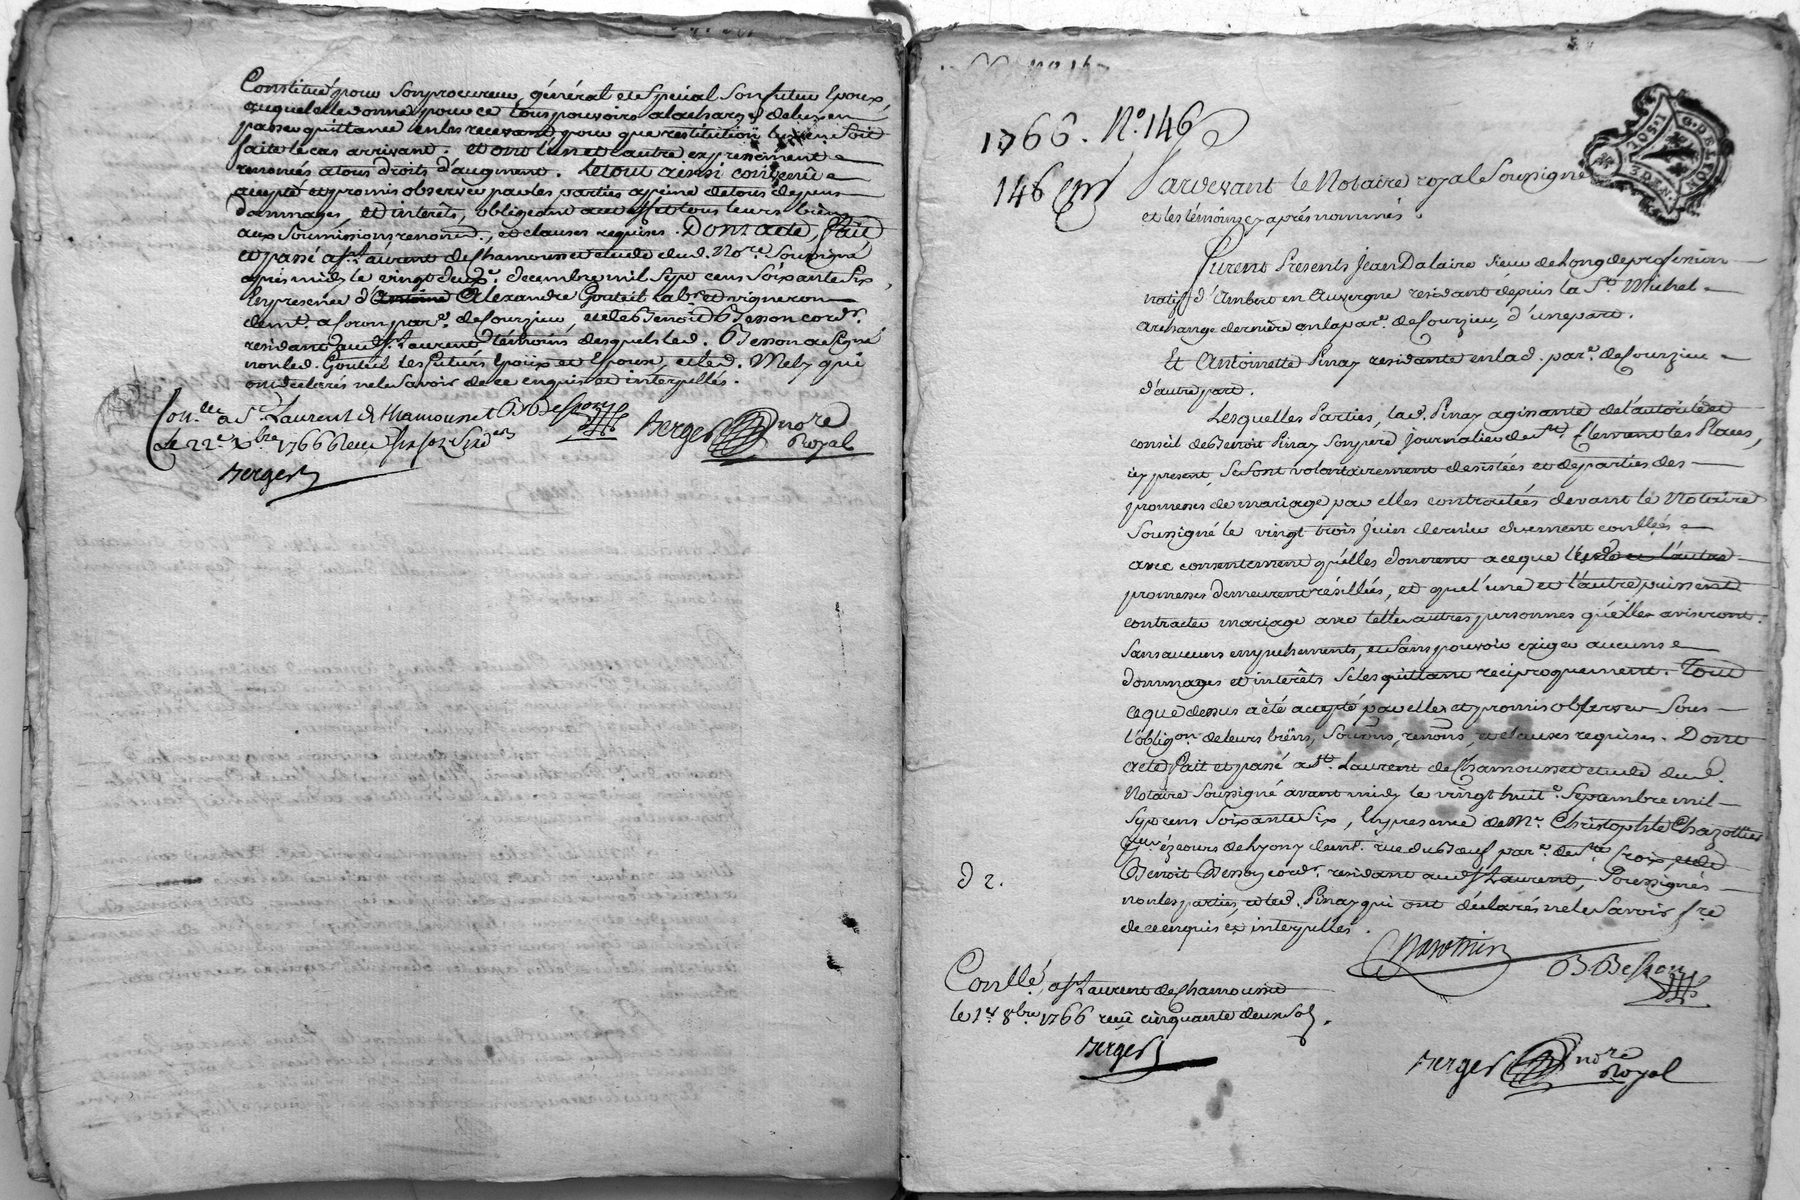 Constitué pour son procureur général et special son futur Epoux,
auquel elle donne pour ce tous pouvoirs a la charge de luy en
passer quittance en les recevant pour que restitution luy en soit
faite le cas arrivant. et ont l'un et l'autre expressément
renoncés a tous droits d'augment. Le tout ainsi convenû
accepté et promis observer par les parties a peine de tous depens
dommages, et interêts, obligeant aux effet tous leurs biens
aux soumissions renonc., et clauses requises. Dont acte, fait
et passé a St. Laurent de Chamousset etude dud. Nore. Soussigné
apres midy le vingt deuxe. decembre mil sept cens soixante six,
En presence d'Antoine Alexandre Gouteil labr. et vigneron
demt. a Soron par. de Courzieu, et de Benoit Besson cordr.
residant aud. St. Laurent témoins desquels led. Besson a signé
non led. Gouteil les futurs Epoux et Epouse, et led. Mely qui
ont declarés ne le savoir de ce enquis et interpellés.
Conllé a St. Laurent de Chamousset B Besson Berger nore
le 22e. xbre. 1766 Royal
Berger
1766. N°. 146
146 Pardevant le Notaire royal Soussigné
et les témoins cy après nommés.
G. DE LYON
3. DEN.
Furent Presents Jean Dalaire Sieur de Long de profession
natif d'Ambert en Auvergne residant depuis la St. Michel
archange derniére en la par. de Courzieu, d'une part.
Et Antoinette Pinay residante en lad. par. de Courzieu
d'autre part.
Lesquelles Parties, lad. Pinay agissante de l'autorité et
conseil de Benoit Pinay son pere journalier de St. Clement les Places,
icy present, se sont volontairement desistées et departies des
promesses de mariage par elles contractées devant le Notaire
Soussigné le vingt trois juin dernier duement conllées
avec consentement qu'elles donnent a ce que lesd. et l'autre
promesses demeurent résiliées, et que l'une et l'autre puissent
contracter mariage avec telles autres personnes qu'elles aviseront.
Sans aucuns empechements, et sans pouvoir exiger aucuns
dommages et interêts se les quittant reciproquement. Tout
ce que dessus a été accepté par elles et promis observer Sous
l'obligon. de leurs biens, Soumons, renons, et clauses requises. Dont
acte fait et passé a St. Laurent de Chamousset etude dud.
Notaire Soussigné avant midy le vingt huite. Septembre mil
Sept cens Soixante Six, En presence de Mr. Christophle Chazottier
ez cours de Lyon y demt. rue du Boeuf par. de Ste. Croix, et de
Benoit Besson cordr. residant aud. St. Laurent, Soussignés
non les parties, et led. Pinay qui ont déclarés ne le Savoir fre
de ce enquis et interpellés.
D 2.
B Besson
Conllé, a St. Laurent de Chamousset
le 1er. 8bre. 1766 reçû cinquante deux Sols.
Berger
Berger nore
Royal